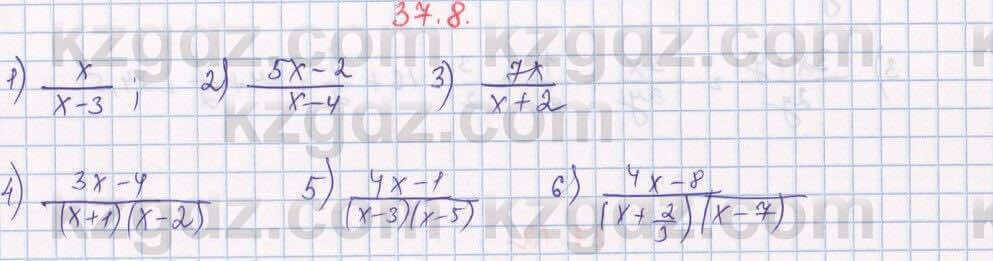 37.8.
1) x/(x-3) ; 2) (5x-2)/(x-4) 3) 7x/(x+2)
4) (3x-4)/((x+1)(x-2)) 5) (4x-1)/((x-3)(x-5)) 6) (4x-8)/((x+2/3)(x-7))
kzgdz.com kzgdz.com
kzgdz.com
kzgdz.com kzgdz.com